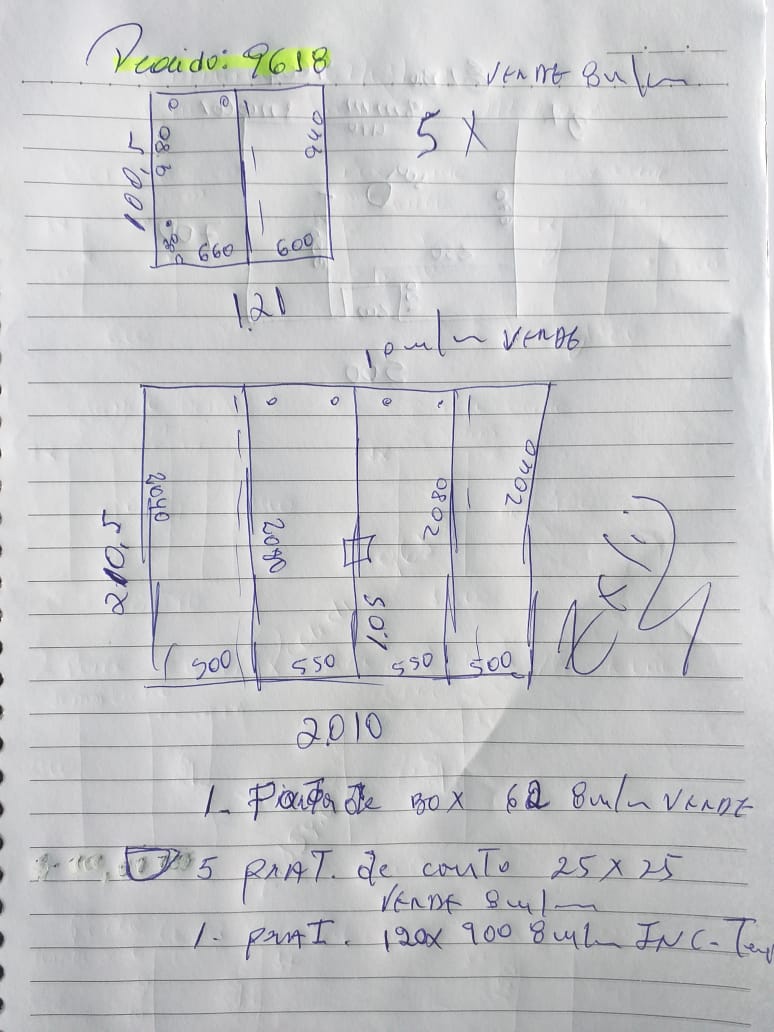 Pedido: 9618
VERDE 8m/m
5 X
100,5
980
940
660
600
121
10m/m VERDE
210,5
2040
2080
2080
2040
1.05
500
550
550
500
2010
1- Porta de BOX 62 8m/m VERDE
5 PRAT. de canto 25 X 25
VERDE 8m/m
1- PRAT. 120X 900 8m/m INC-Tem